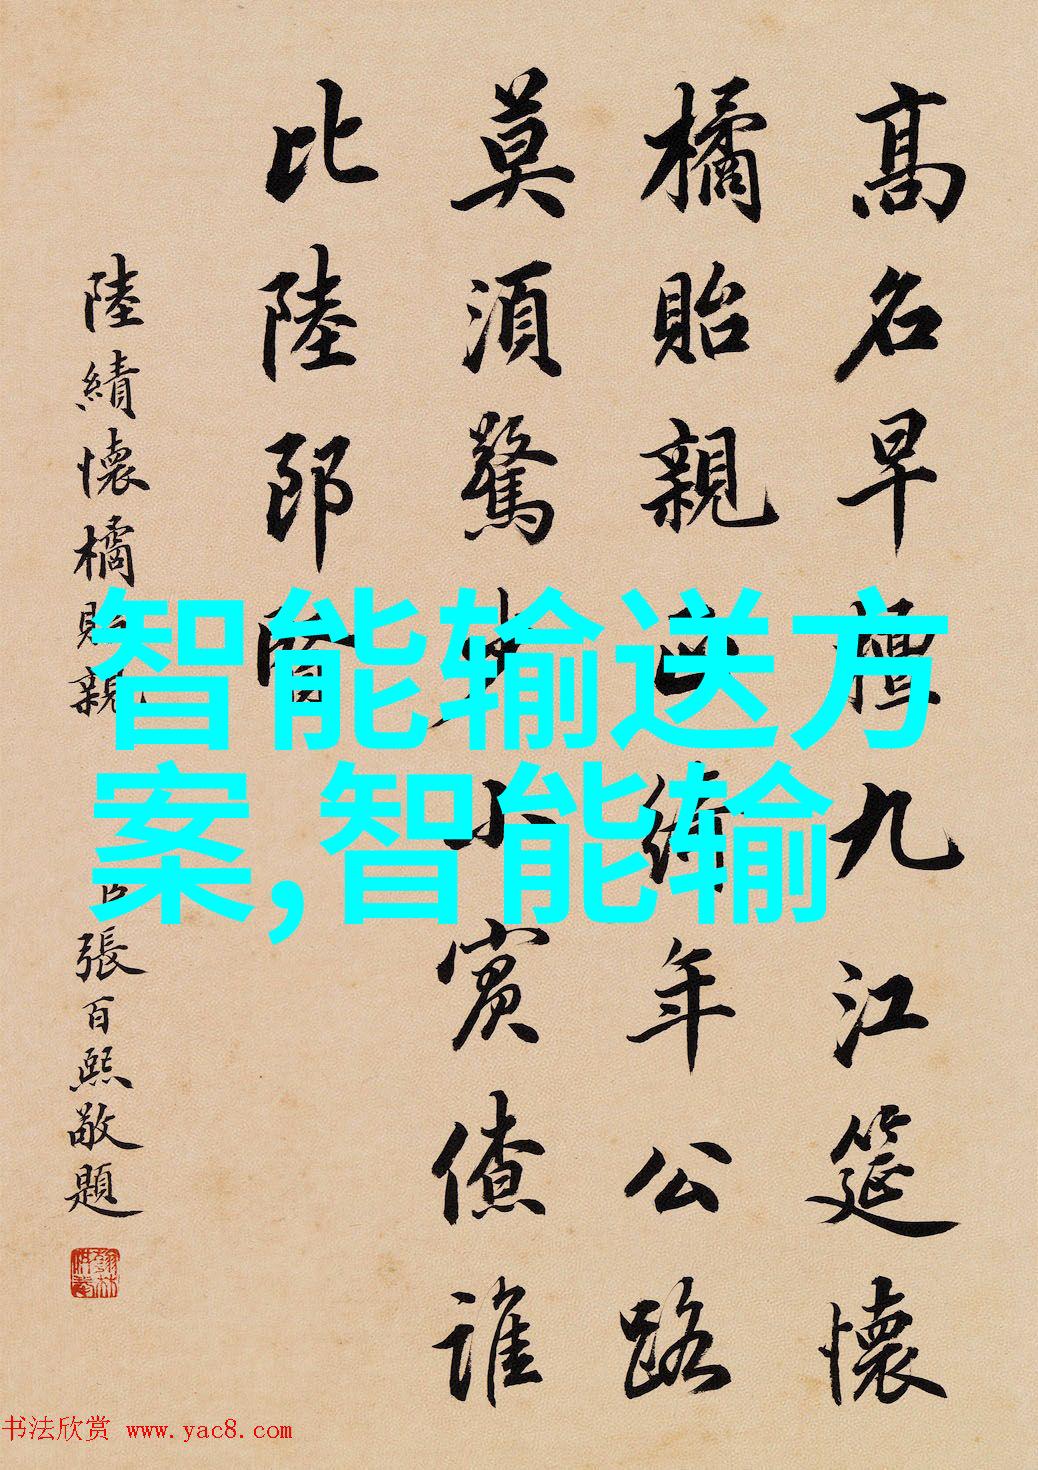 高名早擅九江筵懷
橘貽親年公路
莫須驚小賓僚誰
比陸郎
陸績懷橘貽親
臣張百熙敬題
智能输送方
案,智能输
书法欣赏 www.yac8.com